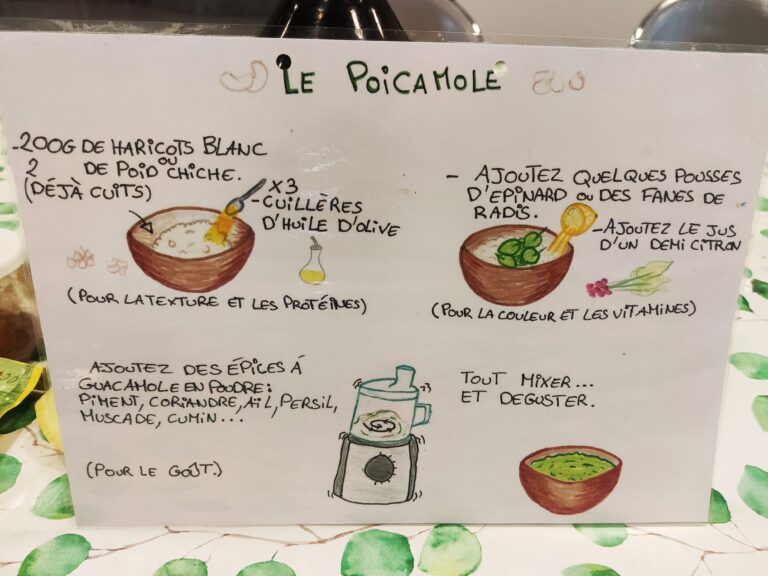 LE POICAMOLE
- 200G DE HARICOTS BLANC
OU
2 DE POID CHICHE.
(DÉJÀ CUITS)
X3
- CUILLÈRES
D'HUILE D'OLIVE
(POUR LA TEXTURE ET LES PROTÉINES)
- AJOUTEZ QUELQUES POUSSES
D'EPINARD OU DES FANES DE
RADIS.
- AJOUTEZ LE JUS
D'UN DEMI CITRON
(POUR LA COULEUR ET LES VITAMINES)
AJOUTEZ DES ÉPICES Á
GUACAMOLE EN POUDRE:
PIMENT, CORIANDRE, AIL, PERSIL,
MUSCADE, CUMIN...
(POUR LE GOÛT.)
TOUT MIXER...
ET DEGUSTER.